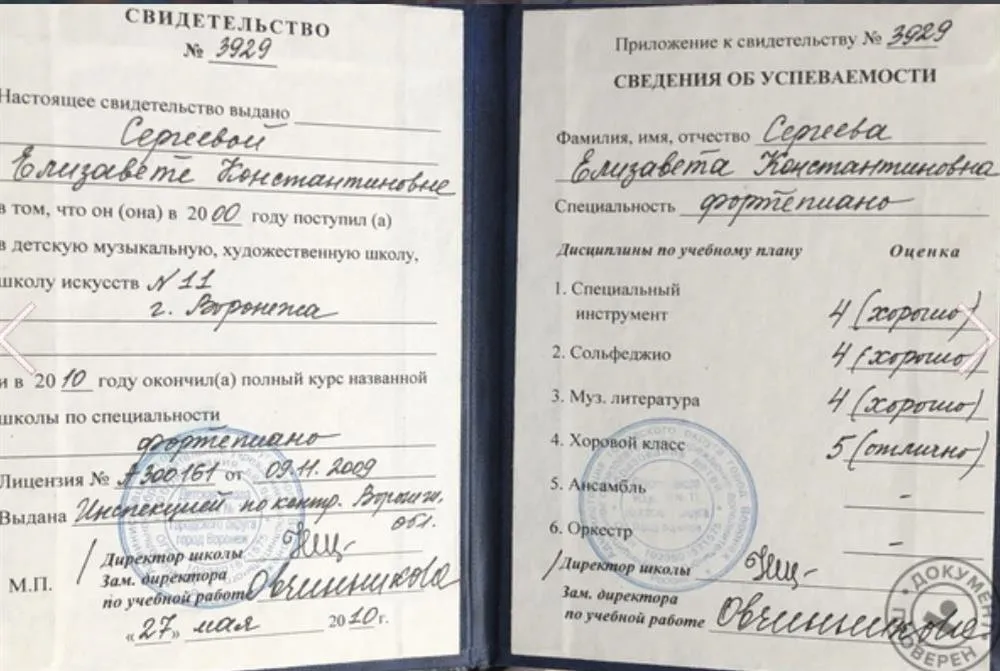 СВИДЕТЕЛЬСТВО
№ 3929
Настоящее свидетельство выдано
Сергеевой
Елизавете Константиновне
в том, что он (она) в 2000 году поступил (а)
в детскую музыкальную, художественную школу,
школу искусств N 11
г. Воронежа
и в 2010 году окончил(а) полный курс названной
школы по специальности
фортепиано
Лицензия № А300161 от 09.11.2009
Выдана Инспекцией по контр. Воронеж.
обл.
Директор школы
М.П.
Зам. директора
по учебной работе Овчинникова
«27» мая 2010 г.
Приложение к свидетельству № 3929
СВЕДЕНИЯ ОБ УСПЕВАЕМОСТИ
Фамилия, имя, отчество Сергеева
Елизавета Константиновна
Специальность фортепиано
Дисциплины по учебному плану Оценка
1. Специальный
инструмент 4 (хорошо)
2. Сольфеджио 4 (хорошо)
3. Муз. литература 4 (хорошо)
4. Хоровой класс 5 (отлично)
5. Ансамбль -
6. Оркестр -
Директор школы
Зам. директора
по учебной работе Овчинникова
ДОКУМЕНТ ПРОВЕРЕН